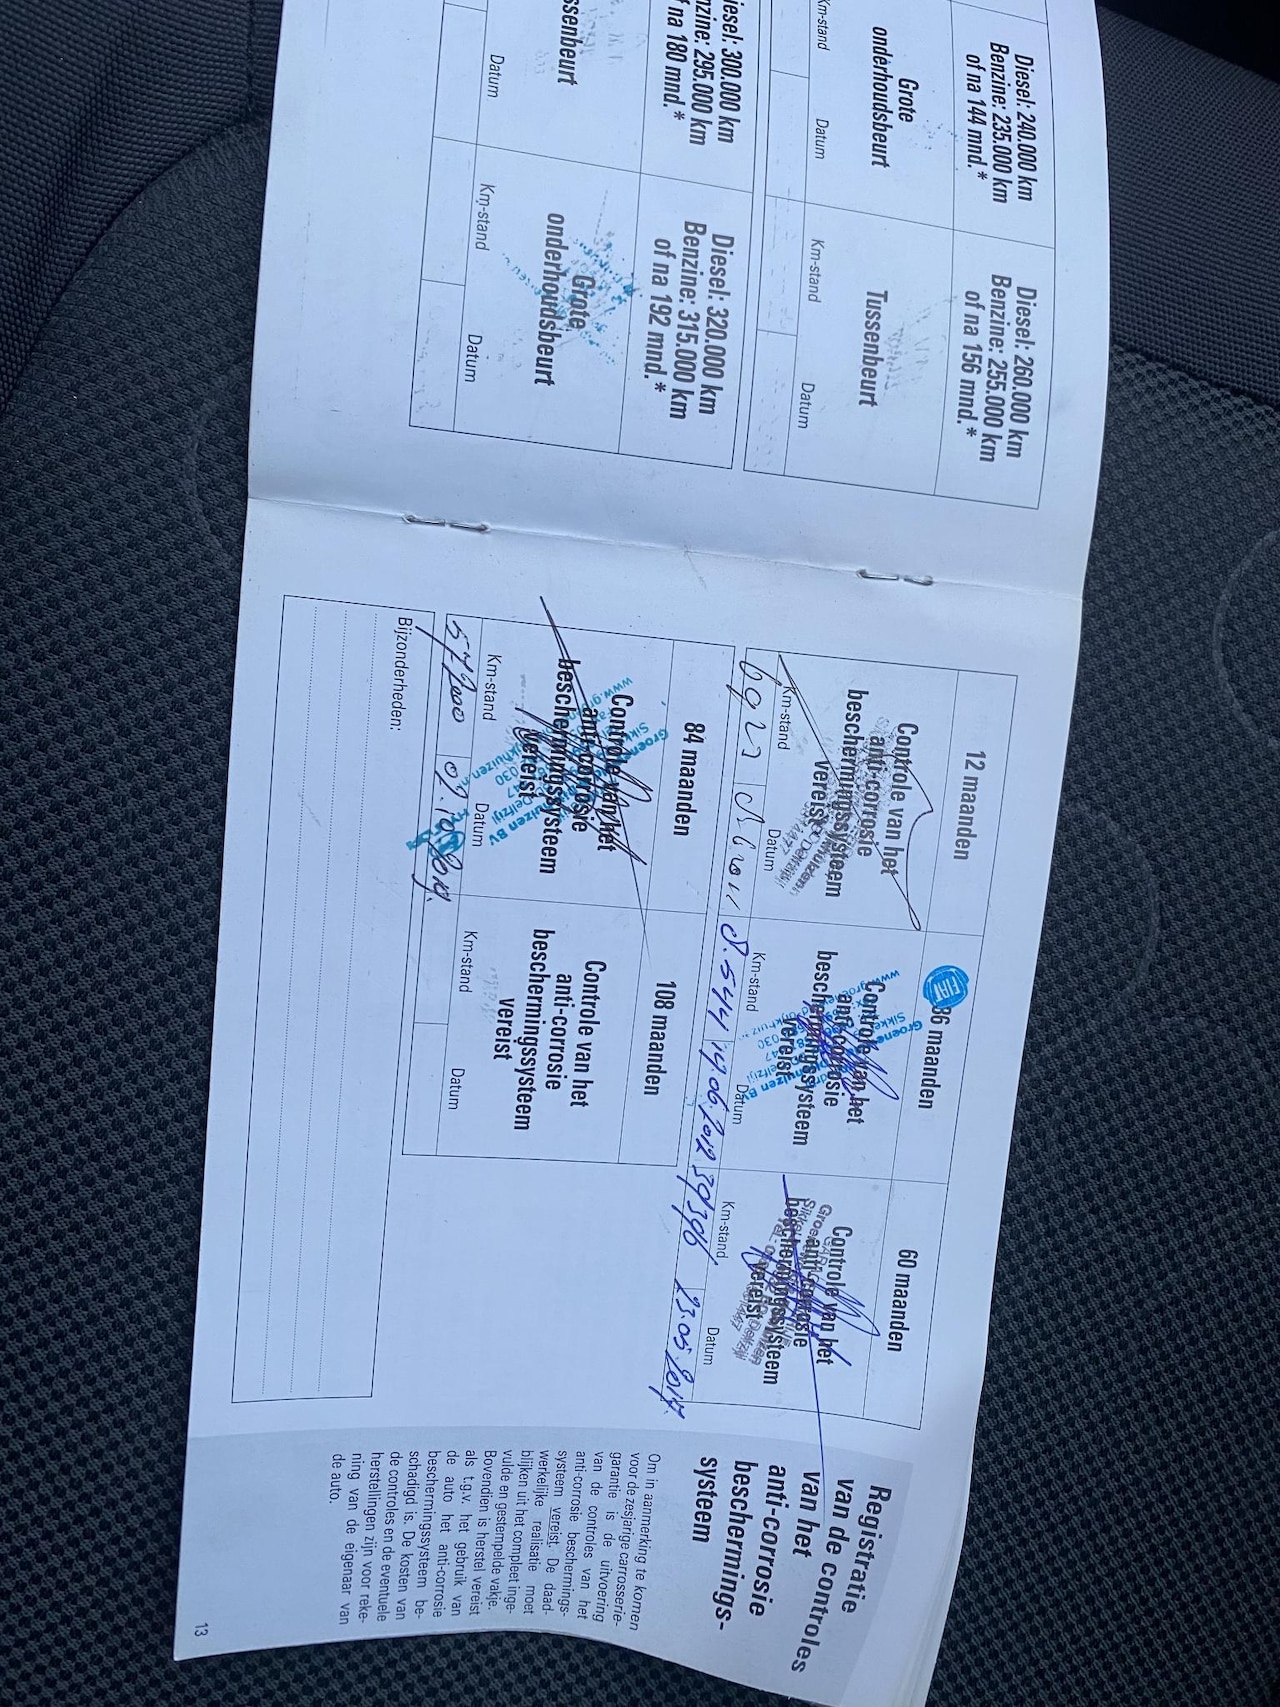 Diesel: 240.000 km
Benzine: 235.000 km
of na 144 mnd.*
Grote
onderhoudsbeurt
Km-stand
Datum
Diesel: 260.000 km
Benzine: 255.000 km
of na 156 mnd.*
Tussenbeurt
Km-stand
Datum
iesel: 300.000 km
nzine: 295.000 km
f na 180 mnd.*
ssenbeurt
Datum
Diesel: 320.000 km
Benzine: 315.000 km
of na 192 mnd.*
Grote
onderhoudsbeurt
Km-stand
Datum
12 maanden
Controle van het
anti-corrosie
beschermingssysteem
vereist
Km-stand
Datum
FIAT
36 maanden
Controle van het
anti-corrosie
beschermingssysteem
vereist
Km-stand
Datum
14.06.2012
60 maanden
Controle van het
anti-corrosie
beschermingssysteem
vereist
Km-stand
Datum
39396
23.05.2014.
84 maanden
Controle van het
anti-corrosie
beschermingssysteem
vereist
Km-stand
Datum
108 maanden
Controle van het
anti-corrosie
beschermingssysteem
vereist
Km-stand
Datum
Bijzonderheden:
Registratie
van de controles
van het
anti-corrosie
beschermings-
systeem
Om in aanmerking te komen
voor de zesjarige carrosserie-
garantie is de uitvoering
van de controles van het
anti-corrosie beschermings-
systeem vereist. De daad-
werkelijke realisatie moet
blijken uit het compleet inge-
vulde en gestempelde vakje.
Bovendien is herstel vereist
als t.g.v. het gebruik van
de auto het anti-corrosie
beschermingssysteem be-
schadigd is. De kosten van
de controles en de eventuele
herstellingen zijn voor reke-
ning van de eigenaar van
de auto.
13